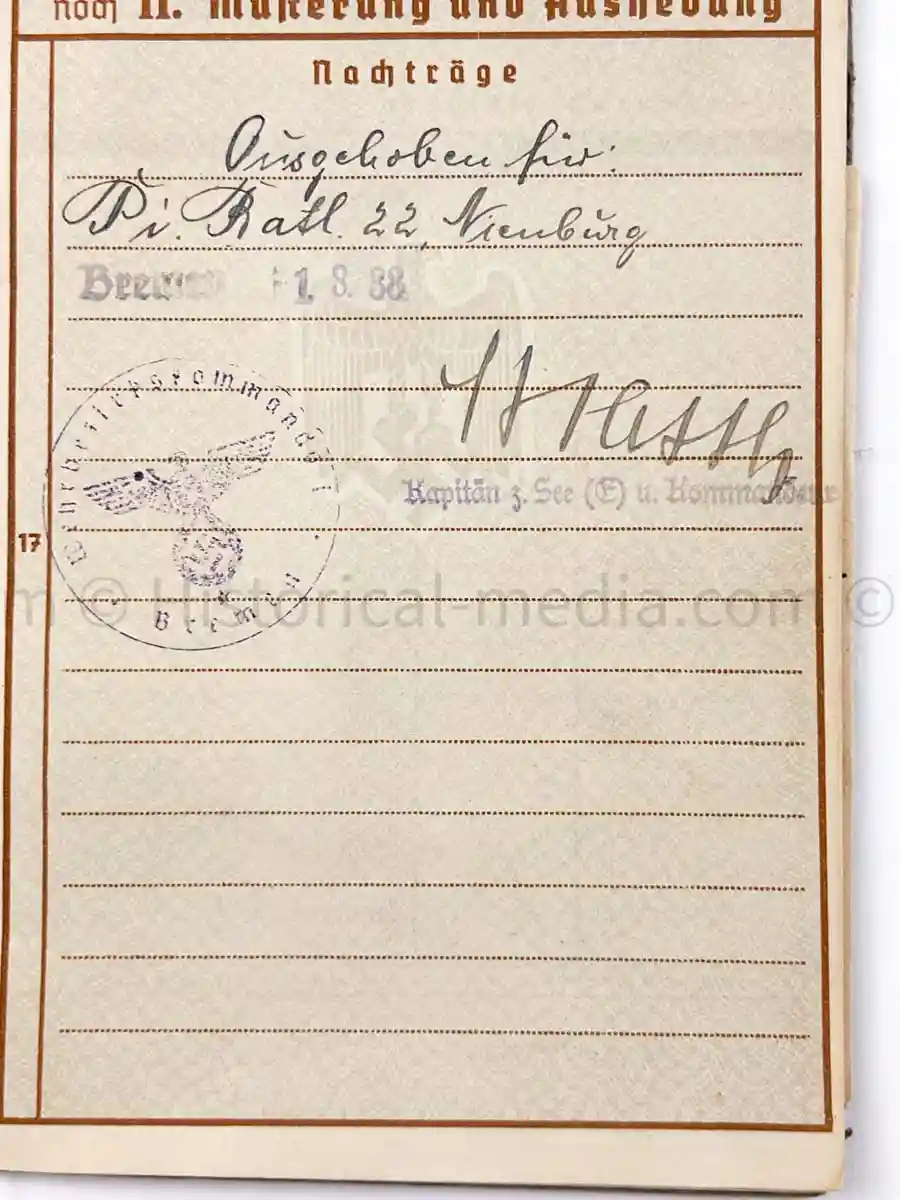 noch II. Musterung und Aushebung
Nachträge
Ausgehoben für:
Pi. Batl. 22, Nienburg
Bremen 1. 8. 38
Kapitän z. See (E) u. Kommandeur
Wehrbezirkskommando
Bremen
17
m © Historical-media.com ©